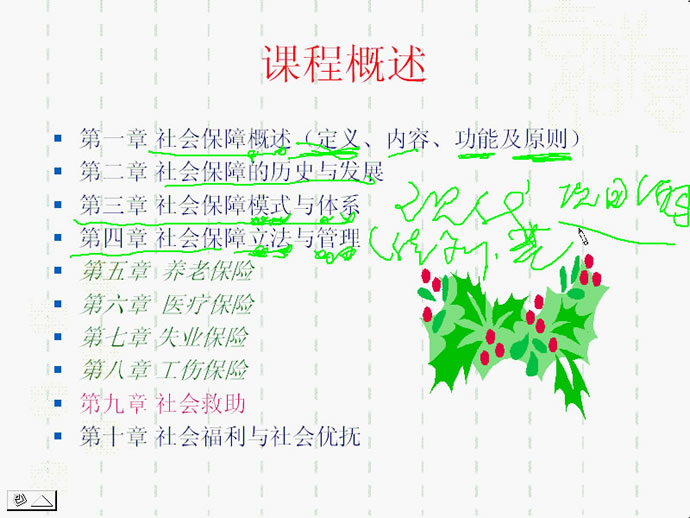 课程概述
第一章 社会保障概述（定义、内容、功能及原则）
第二章 社会保障的历史与发展
第三章 社会保障模式与体系
现代
第四章 社会保障立法与管理
第五章 养老保险
第六章 医疗保险
第七章 失业保险
第八章 工伤保险
第九章 社会救助
第十章 社会福利与社会优抚